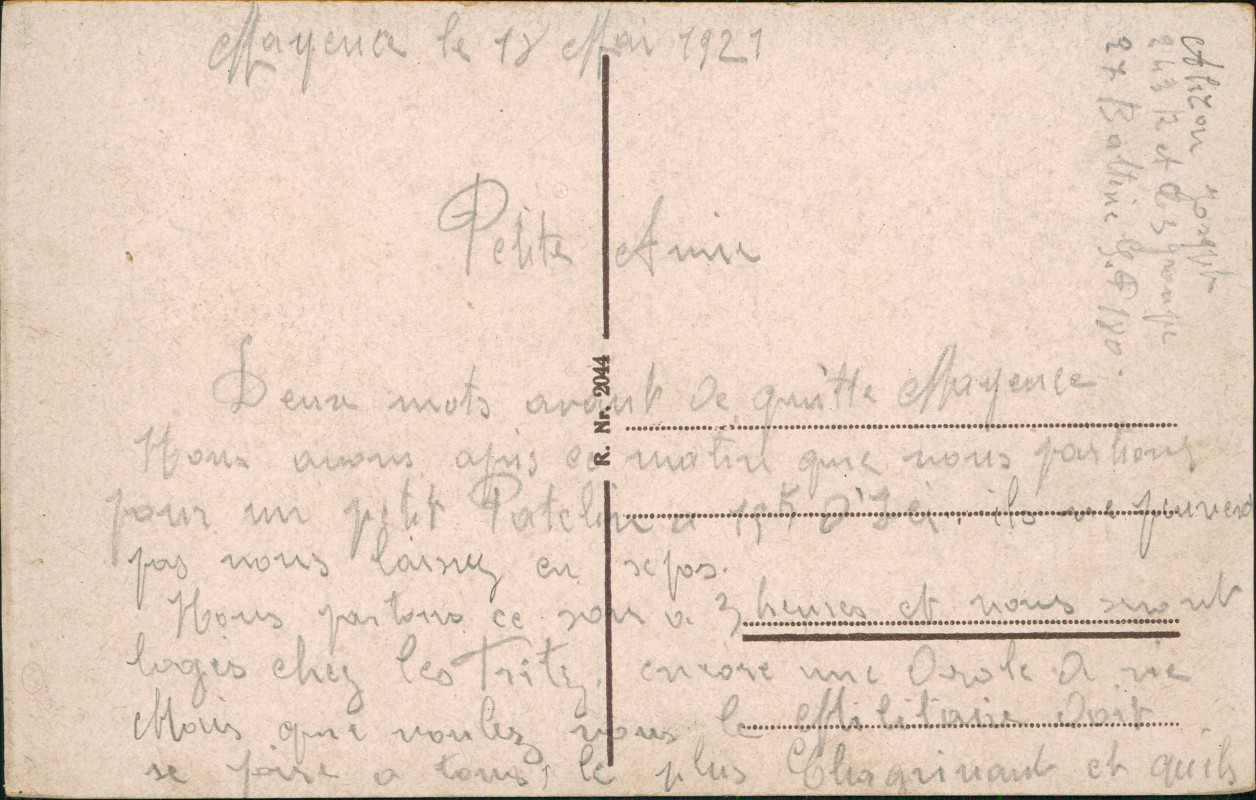 Mayence le 18 Mai 1921
Alizon Joseph
243 R et 3 groupe
27 Batterie S.P 180.
Petite Amie
R. Nr. 2044
Deux mots avant de quitte Mayence
Nous avons apis ce matin que nous partions
pour un petit Patelin a 15 K d'Ici. ils ne peuvent
pas nous laissez en repos.
Nous partons ce soir a 3 heures et nous seront
logés chez les Fritz. encore une drole de vie
Mais que voulez vous le Militaire doit
se faire a tous, le plus Chagrinant et quils